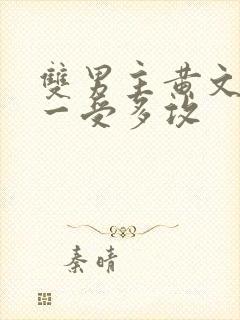 雙男主黃文
一受多攻
秦晴